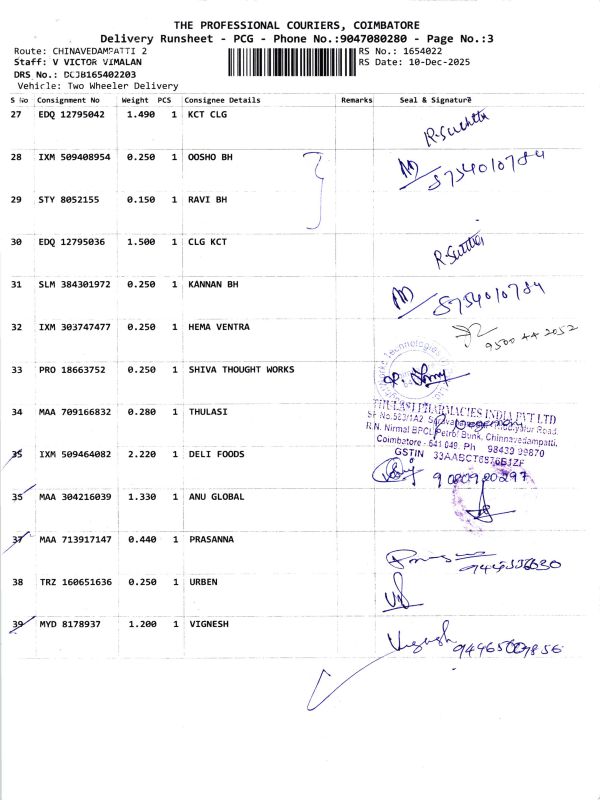 THE PROFESSIONAL COURIERS, COIMBATORE
Delivery Runsheet - PCG - Phone No.:9047080280 - Page No.:3
Route: CHINAVEDAMPATTI 2 RS No.: 1654022
Staff: V VICTOR VIMALAN RS Date: 10-Dec-2025
DRS No.: DCJB165402203
Vehicle: Two Wheeler Delivery
S No Consignment No Weight PCS Consignee Details Remarks Seal & Signature
27 EDQ 12795042 1.490 1 KCT CLG R.Suchitra
28 IXM 509408954 0.250 1 OOSHO BH 8754010784
29 STY 8052155 0.150 1 RAVI BH
30 EDQ 12795036 1.500 1 CLG KCT
31 SLM 384301972 0.250 1 KANNAN BH 8754010784
32 IXM 303747477 0.250 1 HEMA VENTRA 9500 44 2052
33 PRO 18663752 0.250 1 SHIVA THOUGHT WORKS
34 MAA 709166832 0.280 1 THULASI
THULASI PHARMACIES INDIA PVT LTD
SF No.523/1A2
R.N. Nirmal BPCL Petrol Bunk, Chinnavedampatti,
Coimbatore - 641 049. Ph 98433 99870
GSTIN
35 IXM 509464082 2.220 1 DELI FOODS 9080920297
35 MAA 304216039 1.330 1 ANU GLOBAL
37 MAA 713917147 0.440 1 PRASANNA
38 TRZ 160651636 0.250 1 URBEN
39 MYD 8178937 1.200 1 VIGNESH Vignesh